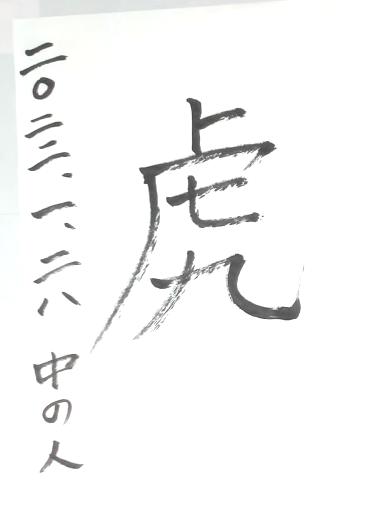 虎
二〇二二、一、二八 中の人